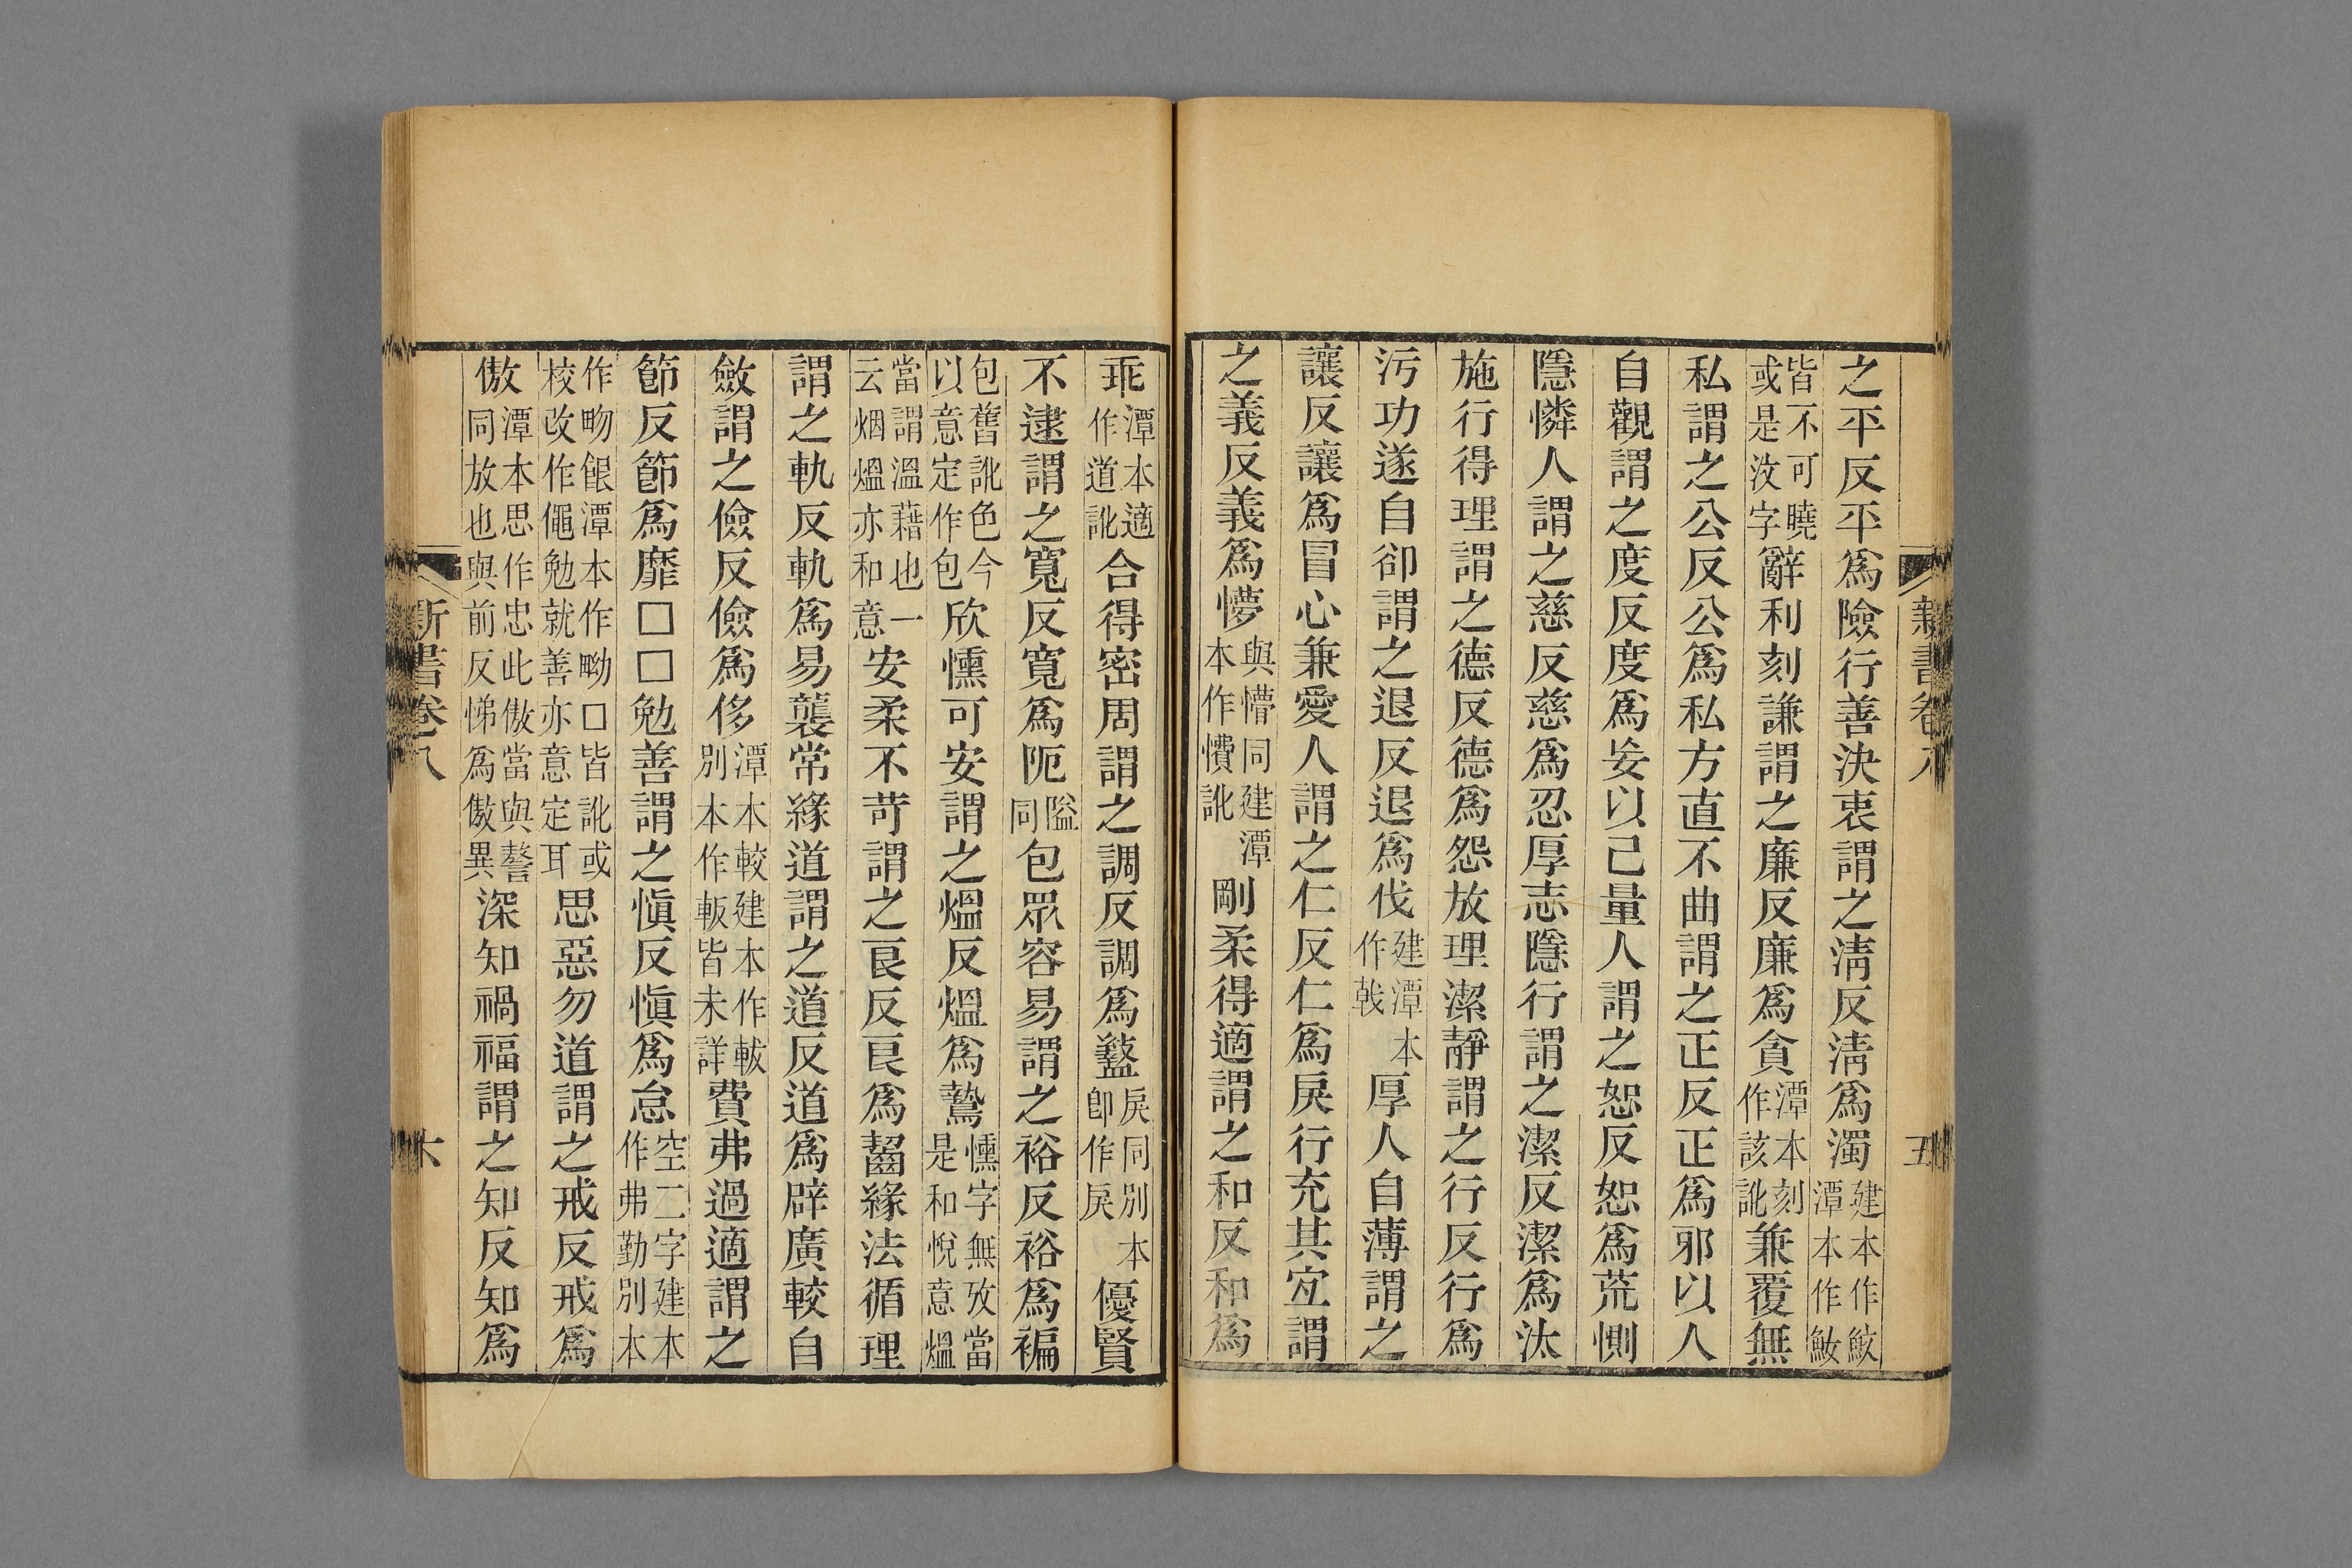 之平反平爲險行善決衷謂之淸反淸爲濁建本作鮁潭本作鮁
皆不可曉或是汶字辭利刻謙謂之廉反廉爲貪潭本刻作該訛兼覆無
私謂之公反公爲私方直不曲謂之正反正爲邪以人
自觀謂之度反度爲妄以己量人謂之恕反恕爲荒惻
隱憐人謂之慈反慈爲忍厚志隱行謂之潔反潔爲汰
施行得理謂之德反德爲怨放理潔靜謂之行反行爲
污功遂自卻謂之退反退爲伐建潭本作戟厚人自薄謂之
讓反讓爲冒心兼愛人謂之仁反仁爲戾行充其宜謂
之義反義爲懜與懵同建潭本作懫訛剛柔得適謂之和反和爲
新書卷八
五
乖潭本適作道訛合得密周謂之調反調爲盭戾同別本卽作戾優賢
不逮謂之寬反寬爲阨隘同包眾容易謂之裕反裕爲褊
包舊訛色今以意定作包欣懽可安謂之熅反熅爲鷙懽字無攷當是和悅意熅
當謂溫藉也一云烟熅亦和意安柔不苛謂之良反良爲齧緣法循理
謂之軌反軌爲易襲常緣道謂之道反道爲辟廣較自
斂謂之儉反儉爲侈潭本較建本作輱別本作輀皆未詳費弗過適謂之
節反節爲靡□□勉善謂之愼反愼爲怠空二字建本作弗勤別本
作眑餦潭本作眑□皆訛或校改作僶勉就善亦意定耳思惡勿道謂之戒反戒爲
傲潭本思作忠此傲當與謷同放也與前反悌爲傲異深知禍福謂之知反知爲
新書卷八
六